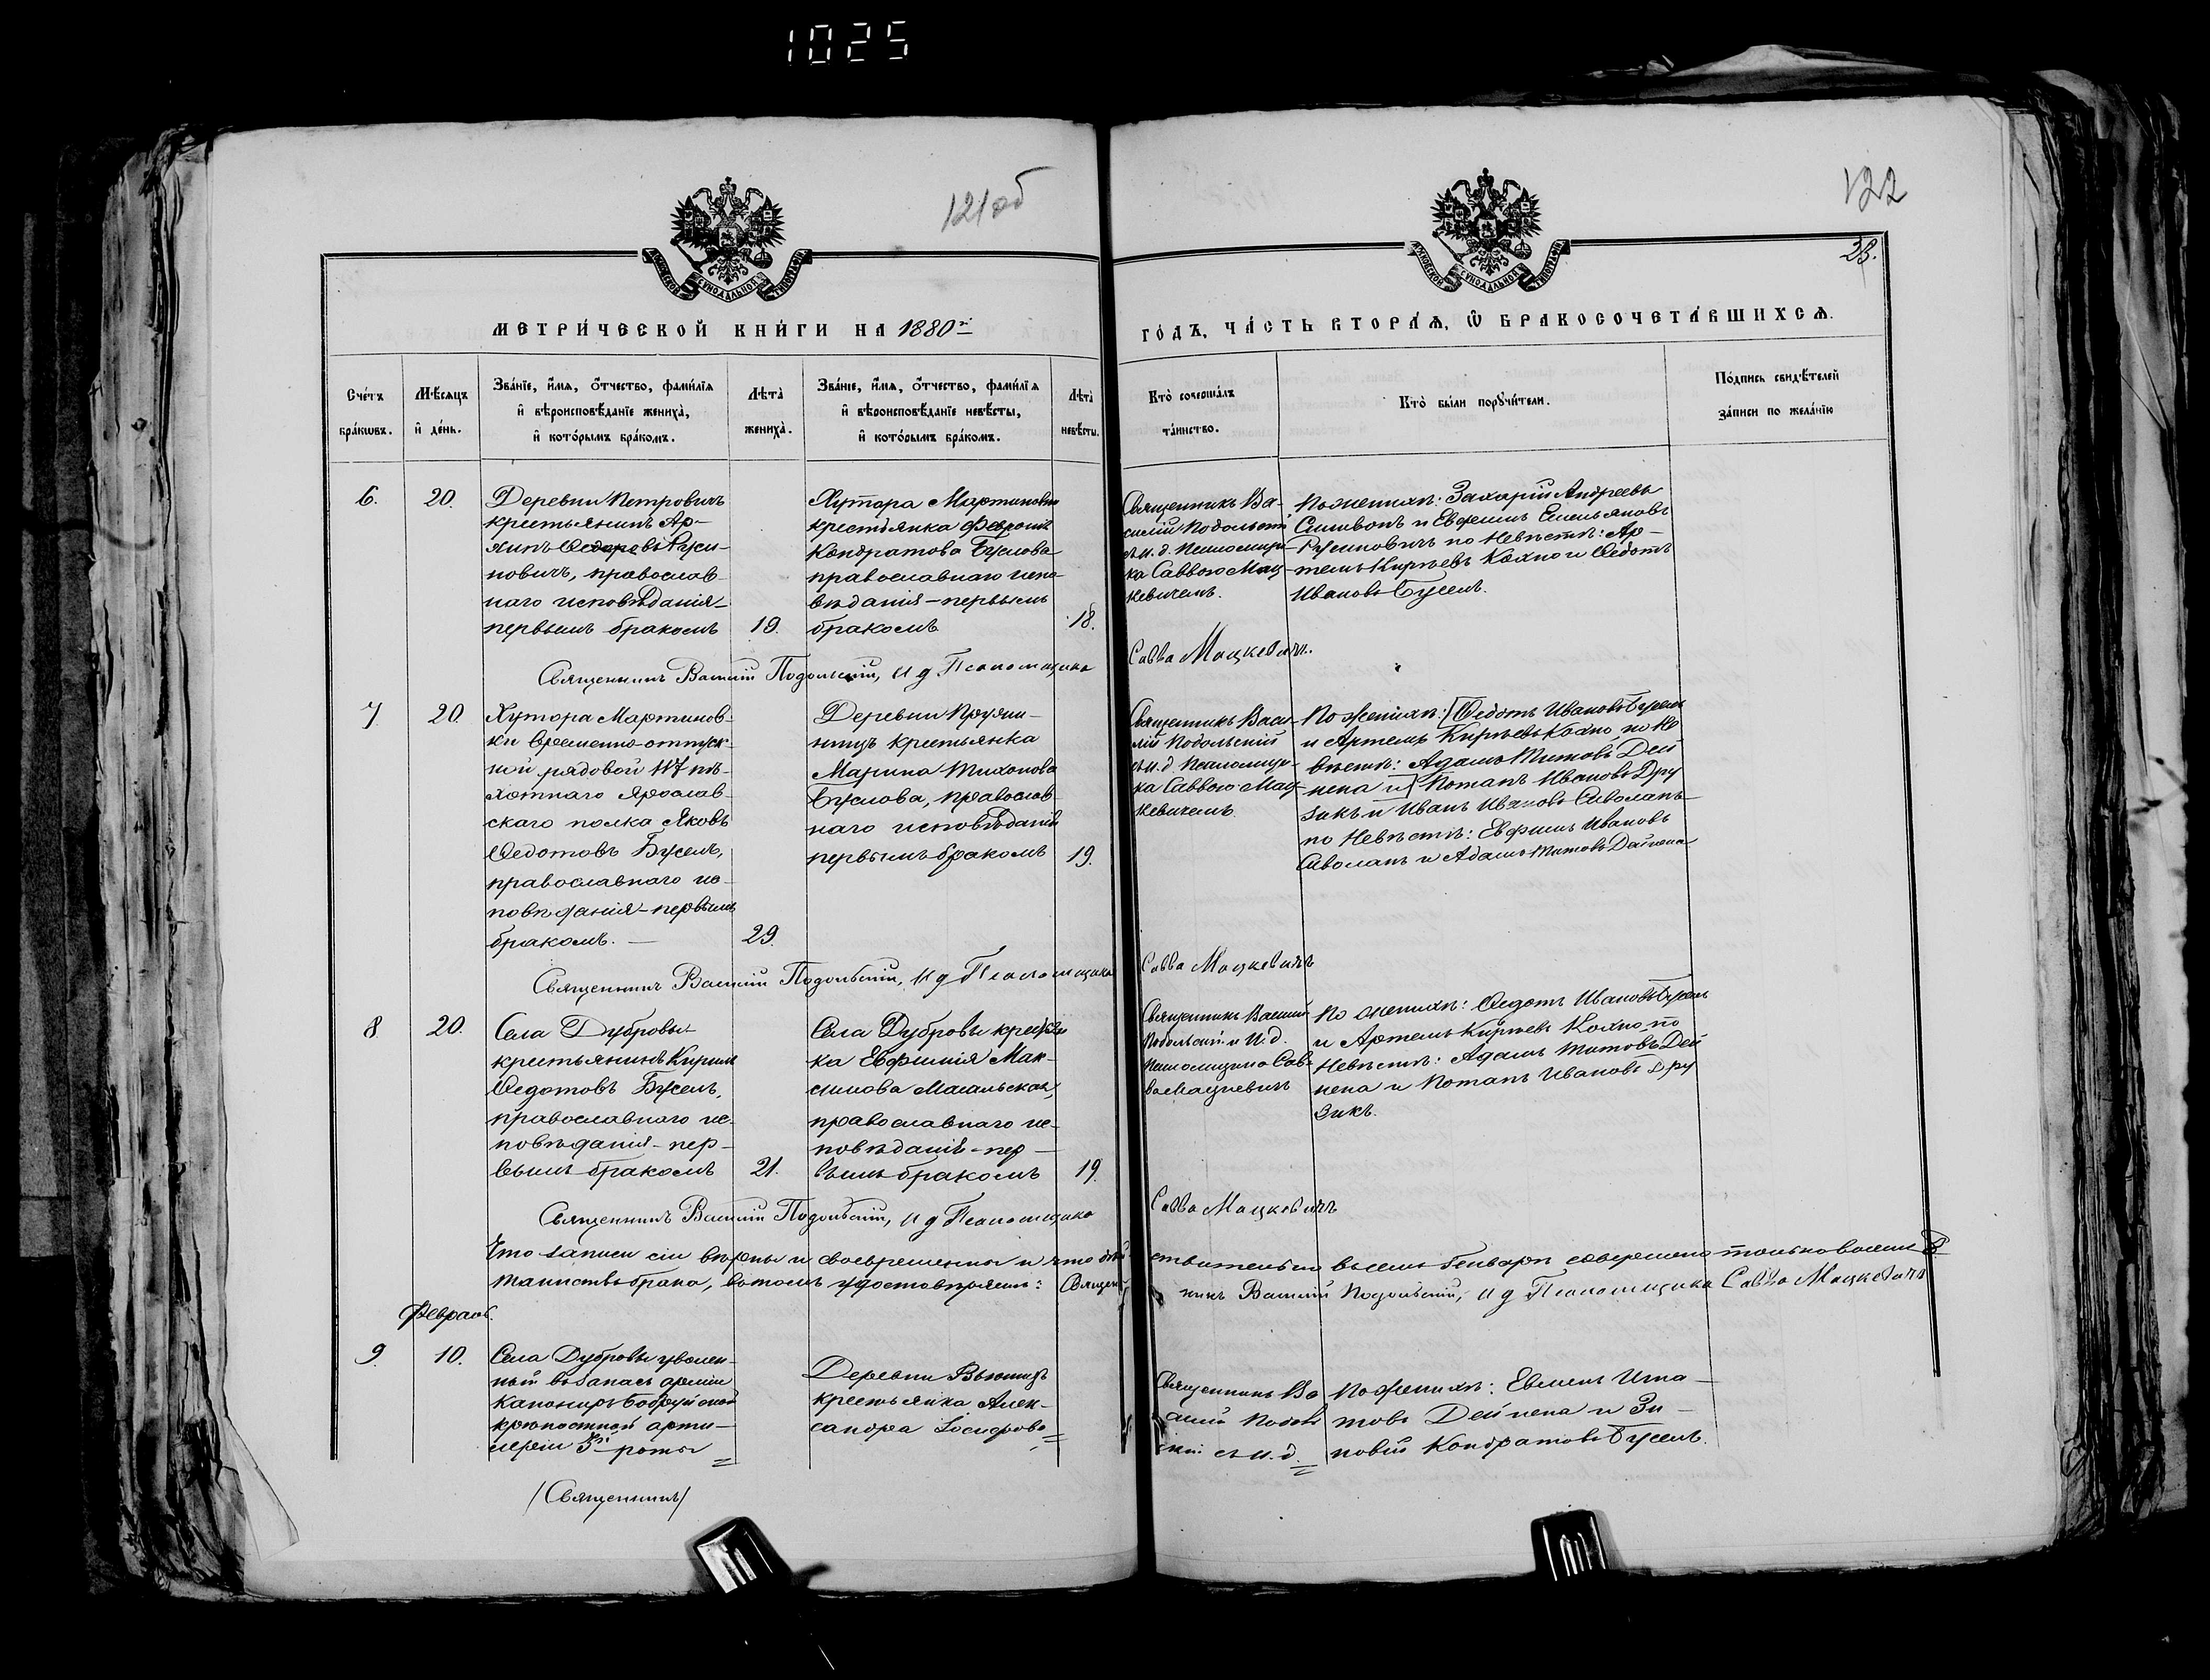 1025
121об
122
23.
МЕТРИ́ЧЕСКОЙ КНИ́ГИ НА 1880й
ГО́ДЪ, ЧА́СТЬ ВТОРА́Я, Ѿ БРАКОСОЧЕТА́ВШИХСЯ.
Сче́тъ бра́кѡвъ.
Мѣ́сяцъ и҆ де́нь.
Зва́нїе, и҆́мѧ, ѻ҆́тчество, фами́лїѧ
и҆ вѣроисповѣ́данїе жениха̀,
и҆ кото́рымъ бра́комъ.
Лѣта̀ жениха̀.
Зва́нїе, и҆́мѧ, ѻ҆́тчество, фами́лїѧ
и҆ вѣроисповѣ́данїе невѣ́сты,
и҆ кото́рымъ бра́комъ.
Лѣта̀ невѣ́сты.
Кто̀ соверша́лъ
та́инство.
Кто̀ бы́ли порꙋчи́тели.
По́дпись свидѣ́телей
за́писи по жела́нїю
6.
20.
Деревни Петровичъ
крестьянинъ Ар-
хипъ Ѳедоровъ Руси-
новичъ, православ-
наго исповѣданія-
первымъ бракомъ
19.
Хутора Мартиновки
крестьянка Февронія
Кондратова Буслова
православнаго испо-
вѣданія-первымъ
бракомъ
18.
Священникъ Ва-
силій Подольскій
съ и. д. Псаломщи-
ка Саввою Мац-
кевичемъ.
По женихѣ: Захарій Андреевъ
и Евфимъ Емельяновъ
Русиновичъ по Невѣстѣ: Ар-
темъ Кирѣевъ Кохно и Ѳедотъ
Ивановъ Бусемъ.
Священникъ Василій Подольскій, И д Псаломщика Савва Мацкевичъ.
7.
20.
Хутора Мартинов-
ки временно-отпуск-
ной рядовой 117 пѣ-
хотнаго Ярослав-
скаго полка Яковъ
Ѳедотовъ Бусел,
православнаго ис-
повѣданія-первымъ
бракомъ. —
29.
Деревни Пружи-
нищъ крестьянка
Марина Тихонова
Буслова, православ-
наго исповѣданія
первымъ бракомъ
19.
Священникъ Васи-
лій Подольскій
съ и. д. Псаломщи-
ка Саввою Мац-
кевичемъ.
По женихѣ: [Ѳедотъ Ивановъ Бусел
и Артемъ Кирѣевъ Кохно, по Не
вѣстѣ: Адамъ Титовъ Дей
нека и] Потапъ Ивановъ Дру
зикъ и Иванъ Ивановъ Сиволапъ-
по Невѣстѣ: Евфимъ Ивановъ
Сиволапъ и Адамъ Титовъ Дайнека
Священникъ Василій Подольскій, И д Псаломщика Савва Мацкевичъ
8
20.
Села Дубровы
крестьянинъ Кирилъ
Ѳедотовъ Бусел,
православнаго ис-
повѣданія-пер-
вымъ бракомъ
21.
Села Дубровы крестьян
ка Евфимія Мак-
симова
православнаго ис-
повѣданія-пер-
вымъ бракомъ
19.
Священникъ Василій
Подольскій и И. д.
Псаломщика Сав-
ва Мацкевичъ
По женихѣ: Ѳедотъ Ивановъ Бусел
и Артемъ Кирѣевъ Кохно, по
Невѣстѣ: Адамъ Титовъ Дей
нека и Потапъ Ивановъ Дру
зикъ.
Священникъ Василій Подольскій, И д Псаломщика Савва Мацкевичъ
Что записи сіи вѣрны и своевременны и что дѣйствительно въ семъ Генварѣ совершено только восемь 8
таинствъ брака, въ томъ удостовѣряемъ: Священникъ Василій Подольскій, И д Псаломщика Савва Мацкевичъ
Февраль.
9.
10.
Села Дубровы уволен-
ный въ запасъ арміи
Канониръ Бобруйской
крѣпостной арти-
леріи 3й роты =
Деревни
крестьянка Алек-
сандра Іосифова =
Священникъ Ва
силій Подоль
скій съ и. д. =
По женихѣ: Евменъ
товъ Дейнека и Зи-
новій Кондратовъ Бусел.
/Священникъ/